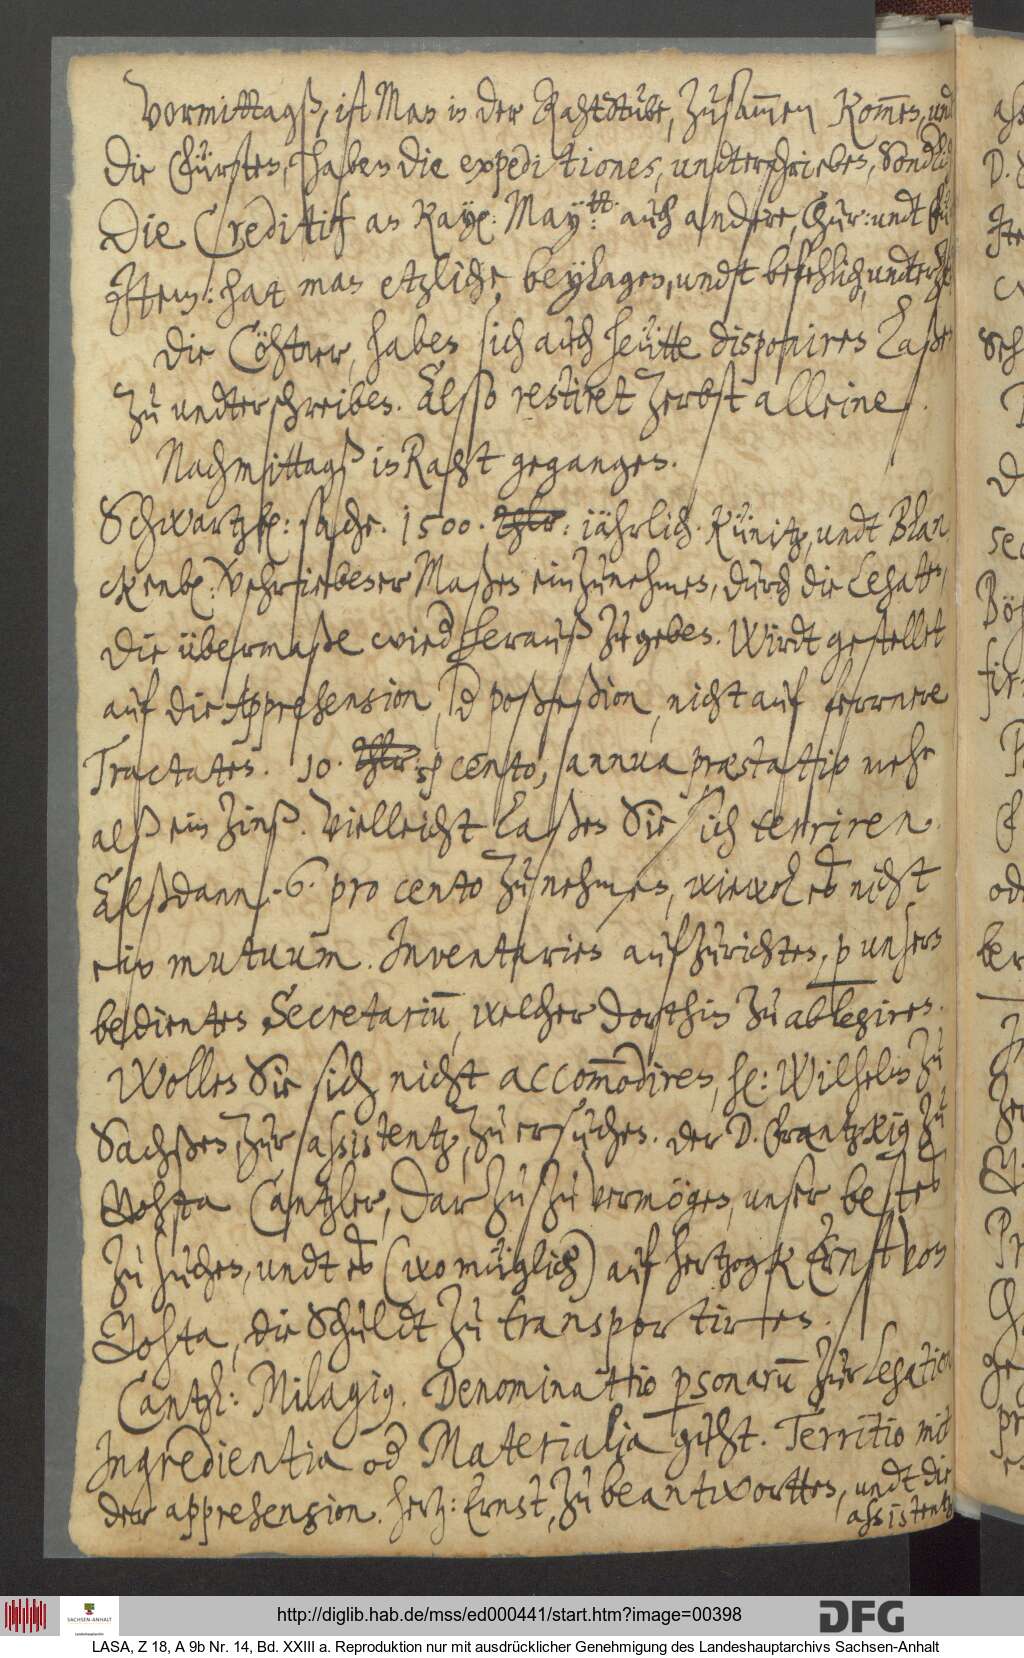 Vormittagß, ist Man in der Rahtstube, zusam̄en kom̄en, und
die Fürsten, haben die expeditiones, undterschrieben, Sonderlich
die Creditif an Kay: May:tt auch andere, Chur: undt Für
Item: hat man etzliche, beylagen, undt befehlich, undterschr
die Cöthner, haben sich auch heütte disponiren Laßen
zu undterschreiben. Also restiret Zerbst alleine.
Nachmittagß in Raht gegangen.
Schwartzb: sache. 1500. Thlr: iährlich. Künitz, undt Blan
ckenb: verschriebener Maßen einzunehmen, durch die Legaten,
die übermaße wieder herauß zu geben. Wirdt gestellet
auf die Apprehension, od poßeßion, nicht auf fernere
Tractaten. 10. Thlr: p cento, annua præstatio mehr
alß ein Zinß. Vielleicht Laßen Sie sich terriren.
Alßdann, 6. pro cento zu nehmen, wiewol es nicht
ein mutuum. Inventarien aufzurichten, p unsern
bedienten Secretariū, welcher dorthin zu ablegiren.
Wollen Sie sich nicht accom̄odiren, h: Wilhelm zu
Sachßen, zur assistentz, zu ersuchen. der D. Frantzkig zu
Gohta Cantzler, dar zu zu vermögen, unser bestes
zu suchen, undt es (wo müglich) auf hertzogk Ernst von
Gohta, die Schuldt zu transportiren.
Cantzl: Milagig. Denominatio psonarū zur Legation
Ingredientia od Materialia guht. Territio mit
der apprehension. hertz: Ernst, zu beantwortten, undt die
assistentz
http://diglib.hab.de/mss/ed000441/start.htm?image=00398
DFG
SACHSEN-ANHALT
LASA, Z 18, A 9b Nr. 14, Bd. XXIII a. Reproduktion nur mit ausdrücklicher Genehmigung des Landeshauptarchivs Sachsen-Anhalt